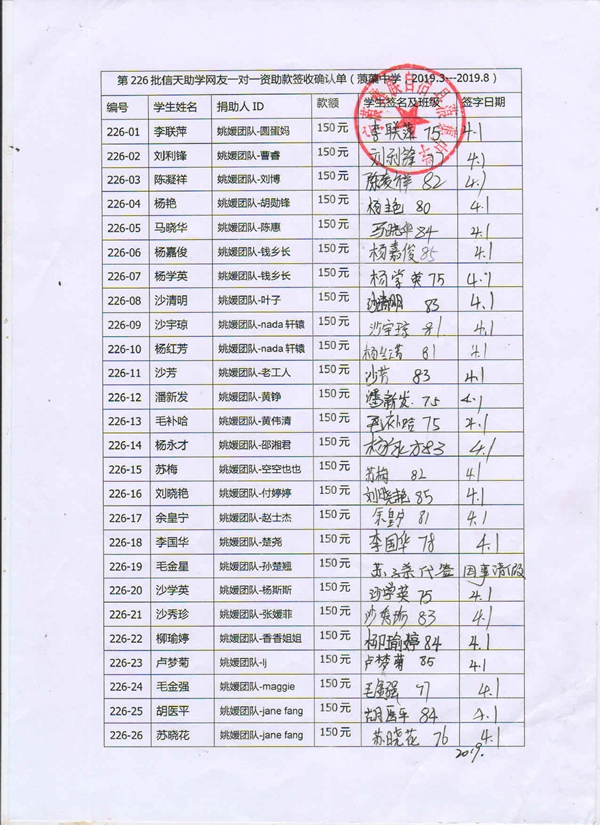 第226批信天助学网友一对一资助款签收确认单（蒗蕖中学：2019.3---2019.8）
编号 学生姓名 捐助人 ID 款额 学生签名及班级 签字日期
226-01 李联萍 姚媛团队-圆蛋妈 150元 李联萍 75 4.1
226-02 刘利锋 姚媛团队-曹睿 150元 刘利锋 4.1
226-03 陈凝祥 姚媛团队-刘博 150元 陈凝祥 82 4.1
226-04 杨艳 姚媛团队-胡勋锋 150元 杨艳 80 4.1
226-05 马晓华 姚媛团队-陈惠 150元 马晓华 84 4.1
226-06 杨嘉俊 姚媛团队-钱乡长 150元 杨嘉俊 85 4.1
226-07 杨学英 姚媛团队-钱乡长 150元 杨学英 75 4.1
226-08 沙清明 姚媛团队-叶子 150元 沙清明 83 4.1
226-09 沙宇琼 姚媛团队-nada 轩辕 150元 沙宇琼 81 4.1
226-10 杨红芳 姚媛团队-nada 轩辕 150元 杨红芳 81 4.1
226-11 沙芳 姚媛团队-老工人 150元 沙芳 83 4.1
226-12 潘新发 姚媛团队-黄铮 150元 潘新发 75 4.1
226-13 毛补哈 姚媛团队-黄伟清 150元 毛补哈 75 4.1
226-14 杨永才 姚媛团队-邵湘君 150元 杨永才 83 4.1
226-15 苏梅 姚媛团队-空空也也 150元 苏梅 82 4.1
226-16 刘晓艳 姚媛团队-付婷婷 150元 刘晓艳 85 4.1
226-17 余皇宁 姚媛团队-赵士杰 150元 余皇宁 81 4.1
226-18 李国华 姚媛团队-楚尧 150元 李国华 78 4.1
226-19 毛金星 姚媛团队-孙楚翘 150元 代签 因事请假
226-20 沙学英 姚媛团队-杨斯斯 150元 沙学英 75 4.1
226-21 沙秀珍 姚媛团队-张媛菲 150元 沙秀珍 83 4.1
226-22 柳瑜婷 姚媛团队-香香姐姐 150元 柳瑜婷 84 4.1
226-23 卢梦菊 姚媛团队-lj 150元 卢梦菊 85 4.1
226-24 毛金强 姚媛团队-maggie 150元 毛金强 77 4.1
226-25 胡医平 姚媛团队-jane fang 150元 胡医平 84 4.1
226-26 苏晓花 姚媛团队-jane fang 150元 苏晓花 76 4.1
2019.